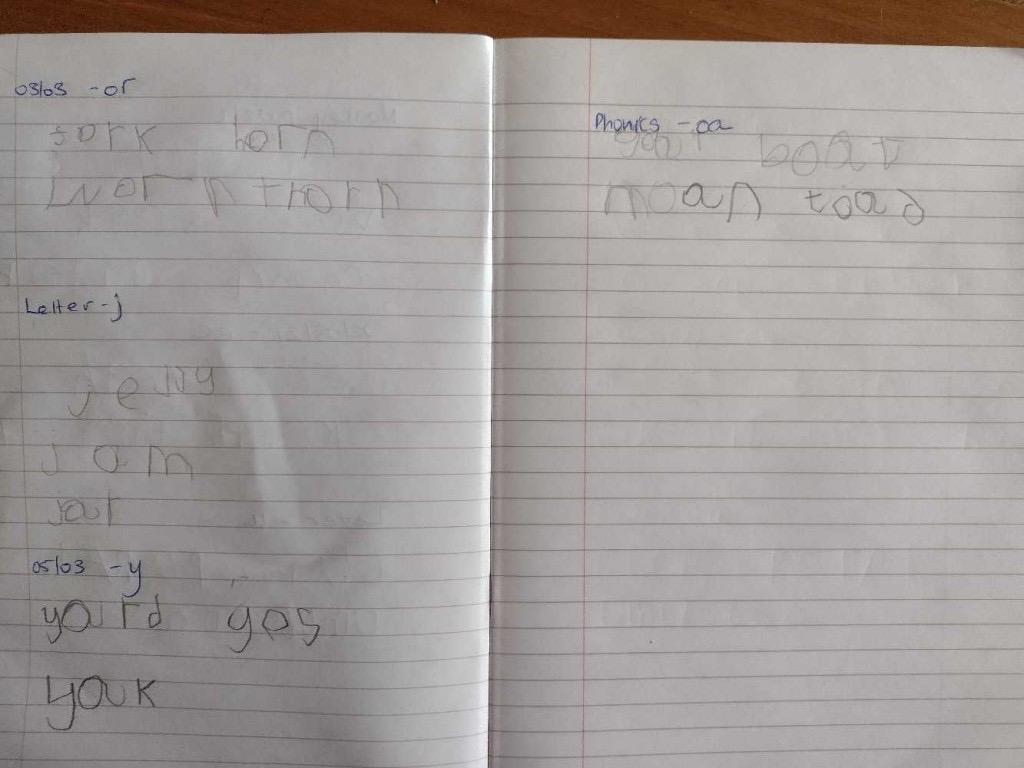 03/03 -or
fork born
worn thorn
Letter-j
jelly
jam
jar
05/03 -y
yard yes
yak
Phonics -oa
goat boat
moan toad